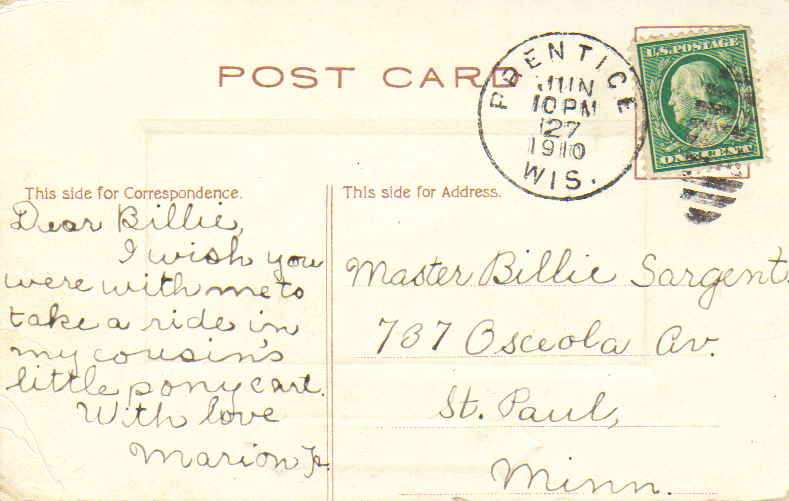 POST CARD
PRENTICE
JUN
10 PM
27
1910
WIS.
U.S. POSTAGE
ONE CENT
This side for Correspondence.
Dear Billie,
I wish you
were with me to
take a ride in
my cousin's
little pony cart.
With love
Marion
This side for Address.
Master Billie Sargent.
737 Osceola Av.
St. Paul,
Minn.